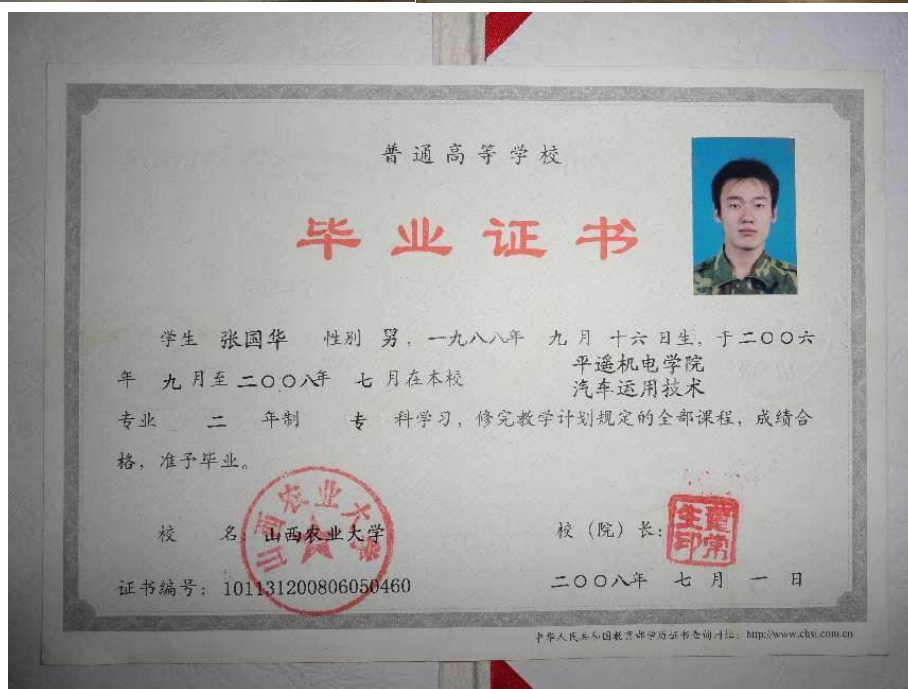 普通高等学校
毕业证书
学生 张国华 性别 男，一九八八年 九月 十六日生，于二〇〇六
年 九月至二〇〇八年 七月在本校 平遥机电学院
汽车运用技术
专业 二 年制 专 科学习，修完教学计划规定的全部课程，成绩合
格，准予毕业。
山西农业大学
校 名：山西农业大学 校（院）长：
证书编号：101131200806050460 二〇〇八年 七月 一日
中华人民共和国教育部学历证书查询网址：http://www.chsi.com.cn